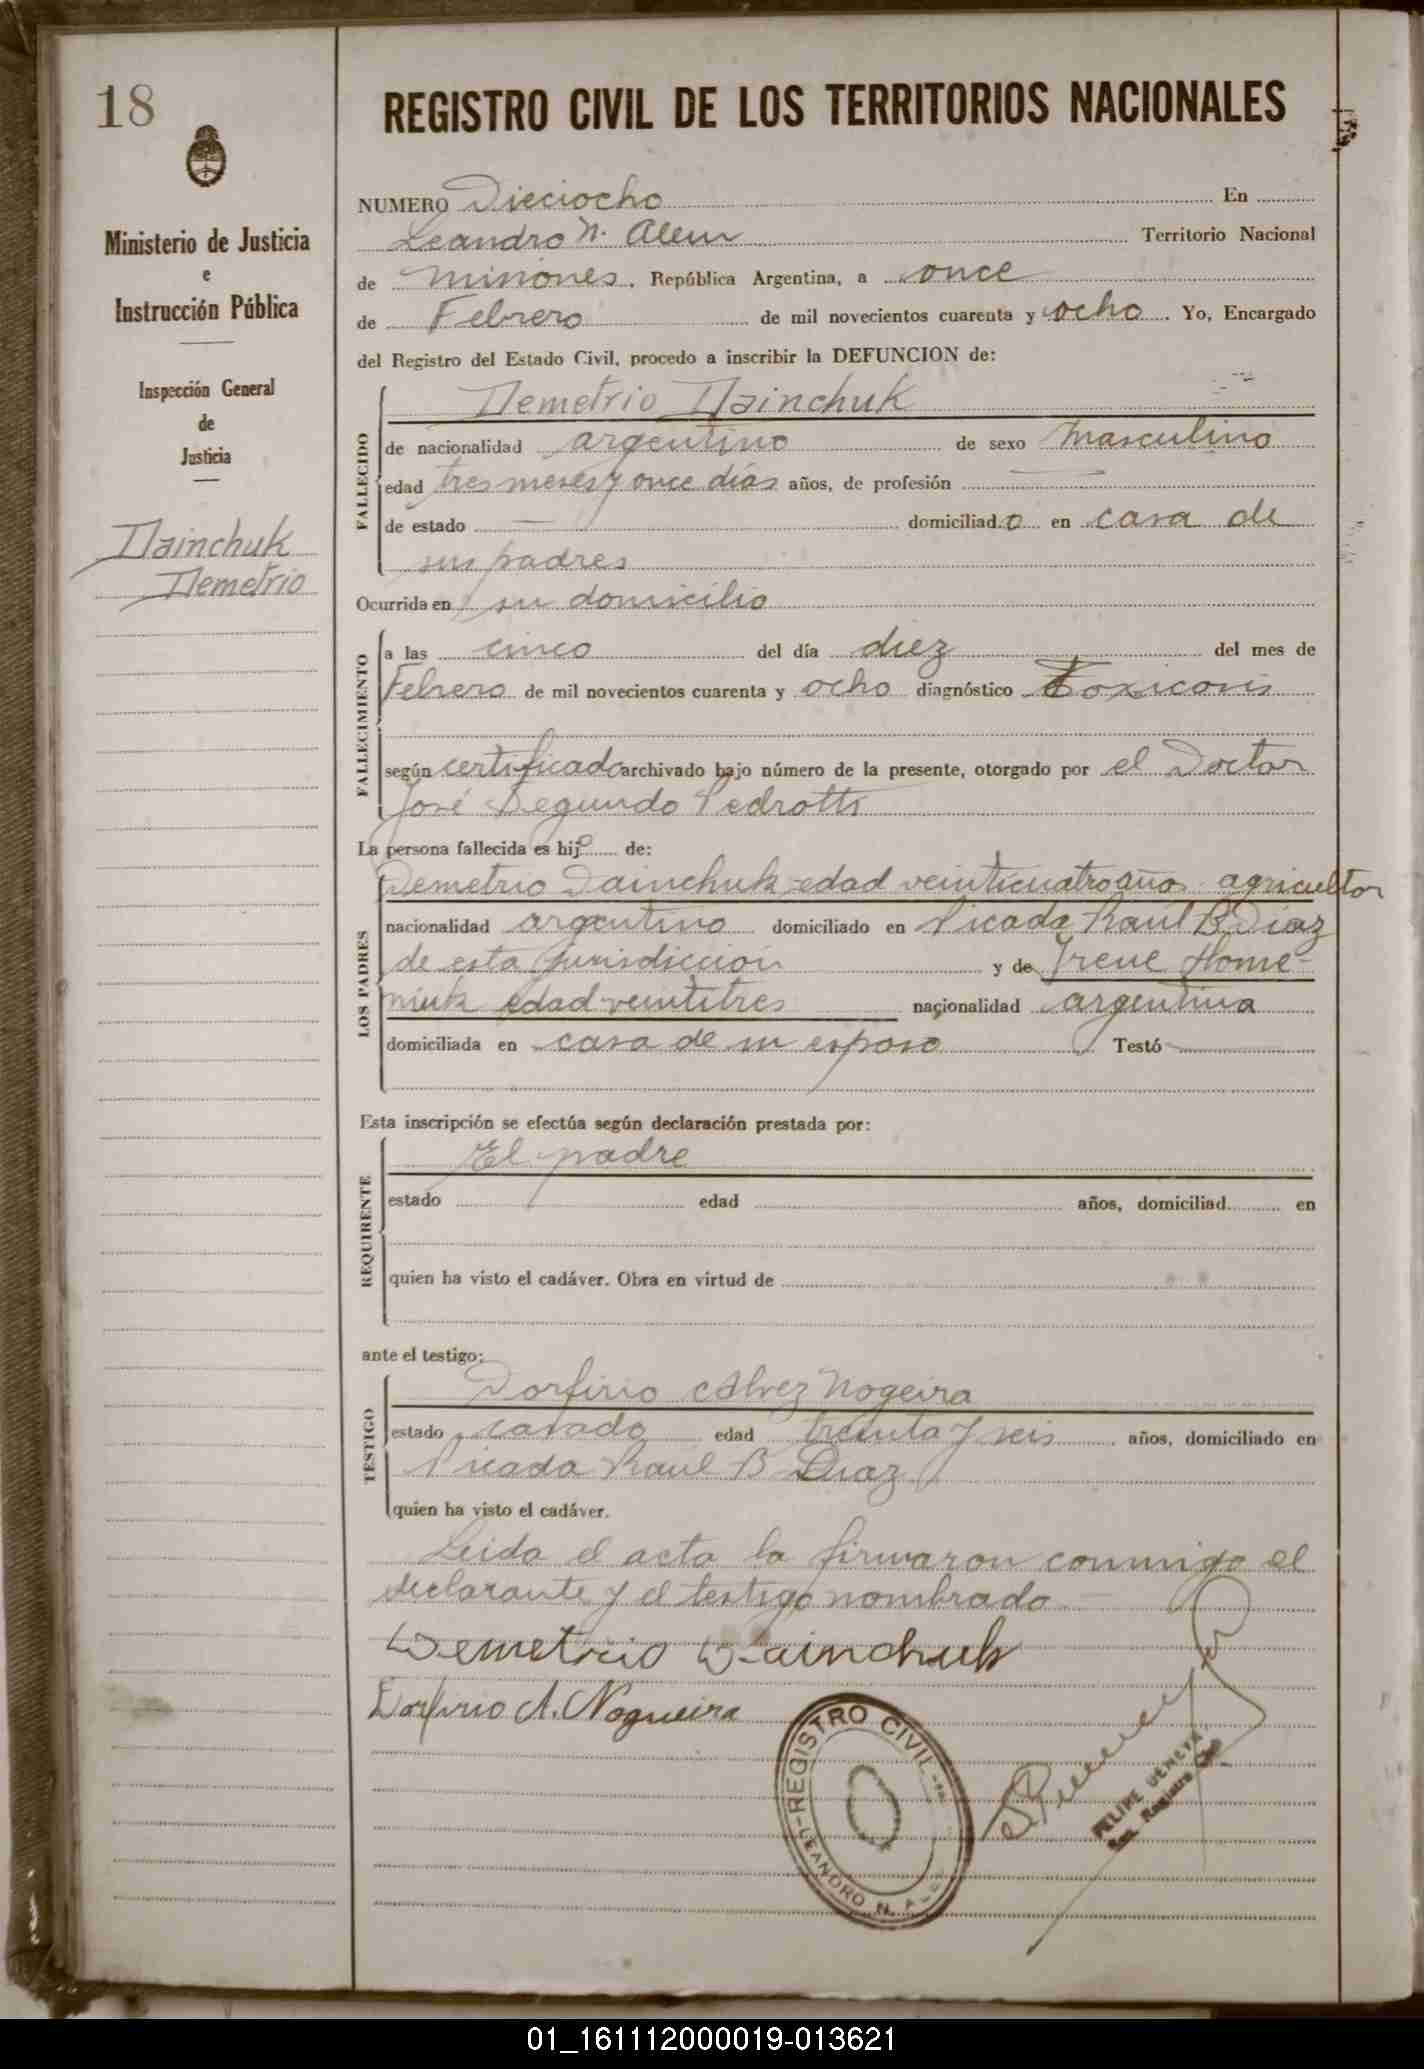 18
Ministerio de Justicia
e
Instrucción Pública
Inspección General
de
Justicia
Dainchuk
Demetrio
REGISTRO CIVIL DE LOS TERRITORIOS NACIONALES
NUMERO Dieciocho En
Leandro N. Alem Territorio Nacional
de Misiones. República Argentina, a once
de Febrero de mil novecientos cuarenta y ocho. Yo, Encargado
del Registro del Estado Civil, procedo a inscribir la DEFUNCION de:
FALLECIDO
Demetrio Dainchuk
de nacionalidad argentino de sexo masculino
edad tres meses y once días años, de profesión —
de estado — domiciliado en casa de
sus padres
Ocurrida en su domicilio
FALLECIMIENTO
a las cinco del día diez del mes de
Febrero de mil novecientos cuarenta y ocho diagnóstico Toxicosis
según certificado archivado bajo número de la presente, otorgado por el Doctor
José Segundo Pedrotti
La persona fallecida es hijo de:
LOS PADRES
Demetrio Dainchuk edad veinticuatro años agricultor
nacionalidad argentino domiciliado en Picada Raúl B. Díaz
de esta jurisdicción y de Irene Home-
niuk edad veintitres nacionalidad argentina
domiciliada en casa de su esposo Testó —
Esta inscripción se efectúa según declaración prestada por:
REQUIRENTE
El padre
estado edad años, domiciliad en
quien ha visto el cadáver. Obra en virtud de
ante el testigo:
TESTIGO
Dorfirio Alvez Nogeira
estado casado edad treinta y seis años, domiciliado en
Picada Raúl B Diaz
quien ha visto el cadáver.
Leida el acta la firmaron conmigo el
declarante y el testigo nombrado —
Demetrio Dainchuk
Dorfirio A. Nogueira
REGISTRO CIVIL
LEANDRO N. ALEM
FELIPE
Enc. Registro Civil
01_161112000019-013621